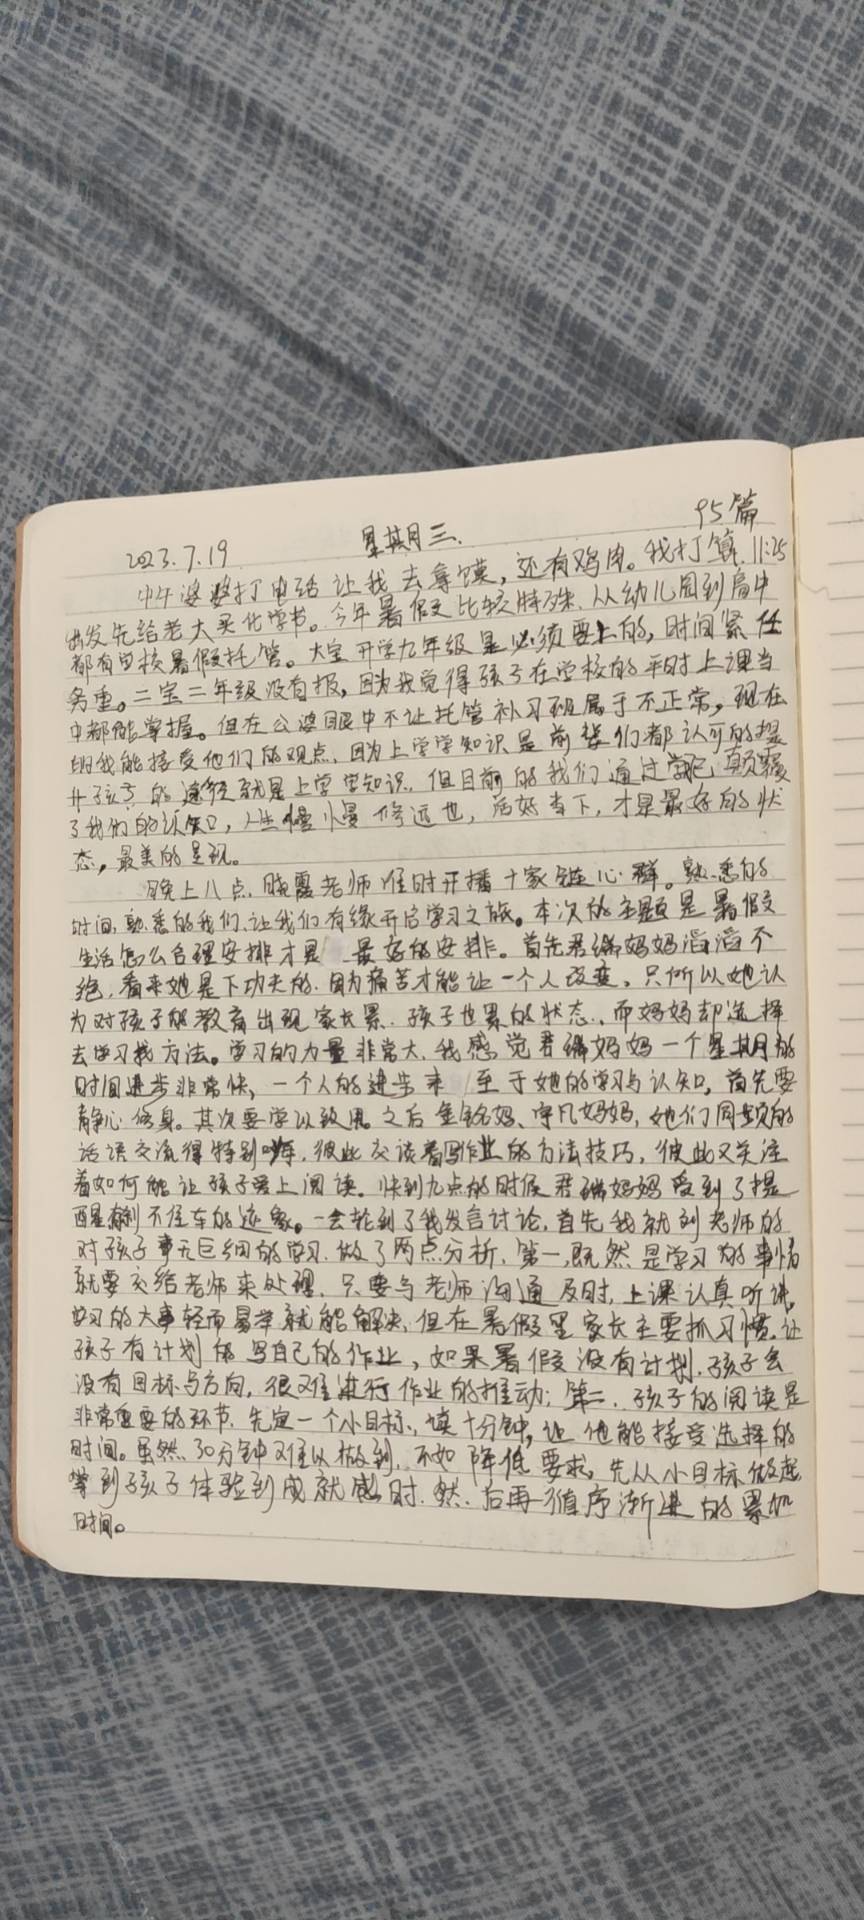 95篇
2023.7.19 星期三.
中午婆婆打电话让我去拿馍，还有鸡肉。我打算11:25
出发先给老大买化学书。今年暑假比较特殊.从幼儿园到高中
都有学校暑假托管。大宝开学九年级是必须要上的，时间紧任
务重。二宝二年级没有报，因为我觉得孩子在学校的平时上课当
中都能掌握。但在公婆眼中不让托管补习班属于不正常，现在
的我能接受他们的观点.因为上学学知识是前辈们都认可的提
升孩子的途径就是上学学知识.但目前的我们通过学习颠覆
了我们的认知，人生慢慢修远也，活好当下，才是最好的状
态，最美的呈现。
晚上八点.晓霞老师准时开播十家链心群。熟悉的
时间.熟悉的我们.让我们有缘开启学习之旅。本次的主题是暑假
生活怎么合理安排才是最好的安排。首先君瑞妈妈滔滔不
绝.看来她是下功夫的.因为痛苦才能让一个人改变。只所以她认
为对孩子的教育出现家长累.孩子也累的状态.而妈妈却选择
去学习找方法。学习的力量非常大.我感觉君瑞妈妈一个星期的
时间进步非常快，一个人的进步来至于她的学习与认知，首先要
静心修身。其次要学以致用。之后 妈、宇凡妈妈，她们同频的
话语交流得特别嗨，彼此交谈着写作业的方法技巧，彼此又关注
着如何能让孩子爱上阅读.快到九点的时候君瑞妈妈受到了提
醒 刹不住车的迹象。一会轮到了我发言讨论.首先我就列老师的
对孩子事无巨细的学习.做了两点分析.第一，既然是学习的事情
就要交给老师来处理.只要与老师沟通及时.上课认真听讲，
学习的大事轻而易举就能解决.但在暑假里家长主要抓习惯.让
孩子有计划的写自己的作业，如果暑假没有计划.孩子会
没有目标与方向，很难进行作业的推动；第二.孩子的阅读是
非常重要的环节.先定一个小目标.读十分钟，让他能接受选择的
时间。虽然30分钟难以做到.不如降低要求。先从小目标做起
等到孩子体验到成就感时.然.后再循序渐进的累加
时间。